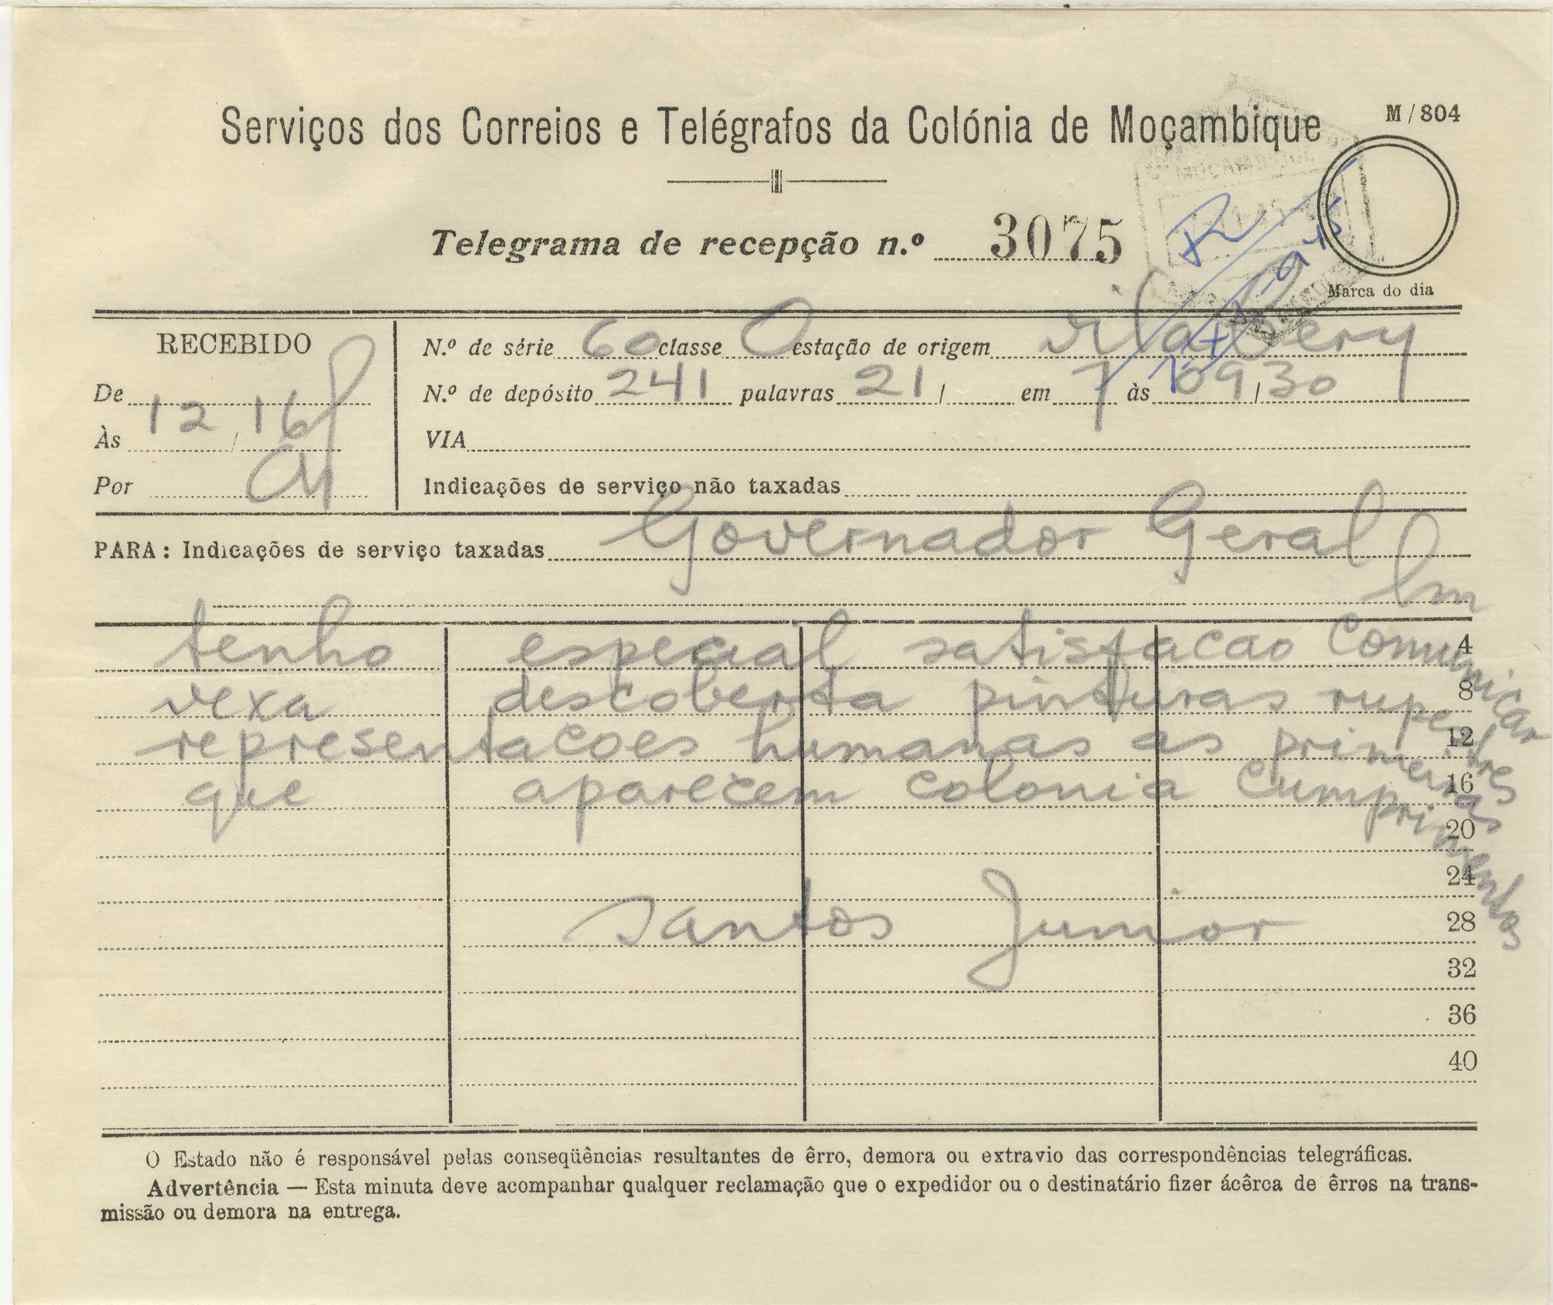 Serviços dos Correios e Telégrafos da Colónia de Moçambique
M/804
Telegrama de recepção n.º 3075
Marca do dia
RECEBIDO
De
Às 12/16
Por
N.º de série 60 classe O estação de origem vila Pery
N.º de depósito 241 palavras 21/ em 7 às 09/30
VIA
Indicações de serviço não taxadas
PARA: Indicações de serviço taxadas Governador Geral
Lm
tenho especial satisfacao comunicar 4
vexa descoberta pinturas rupestres 8
representacoes humanas as primeiras 12
que aparecem colonia Cumprimentos 16
20
24
Santos Junior 28
32
36
40
O Estado não é responsável pelas conseqüências resultantes de êrro, demora ou extravio das correspondências telegráficas.
Advertência — Esta minuta deve acompanhar qualquer reclamação que o expedidor ou o destinatário fizer ácêrca de êrros na trans-
missão ou demora na entrega.